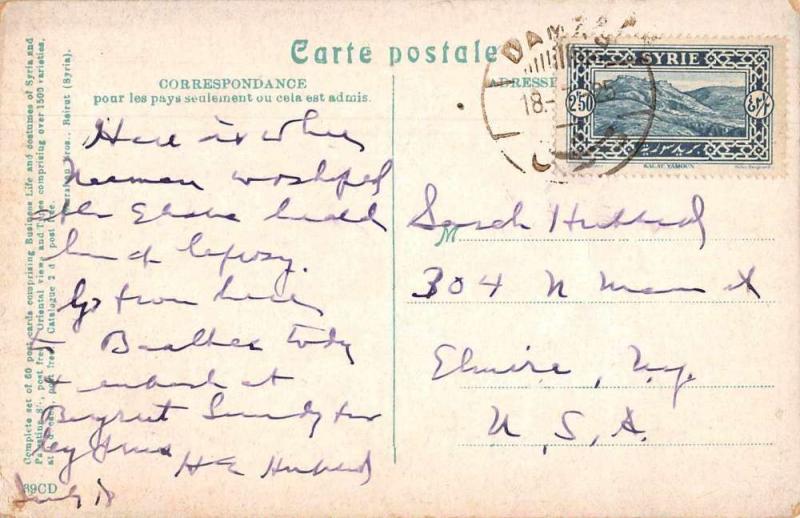 Carte postale
CORRESPONDANCE
pour les pays seulement ou cela est admis.
ADRESSE
DAMAS
18
25
SYRIE
2P50
KALAT YAMOUN
Here is where
Naaman worshiped
after Elisha healed
him of leprosy.
Go from here
to Baalbec today
& embark at
Beyrut Sunday for
H E Hubbard
July 18
M
Sarah Hubbard
304 N Main St
Elmira, N.y.
U, S, A.
Complete set of 60 post cards comprising Business Life and costumes of Syria and
Palestine 8/, post free. Oriental views and Types comprising over 1500 varieties,
at 2 d each, post free. Catalogue 2 d post free.
Sarrafian Bros., Beirut (Syria).
69CD